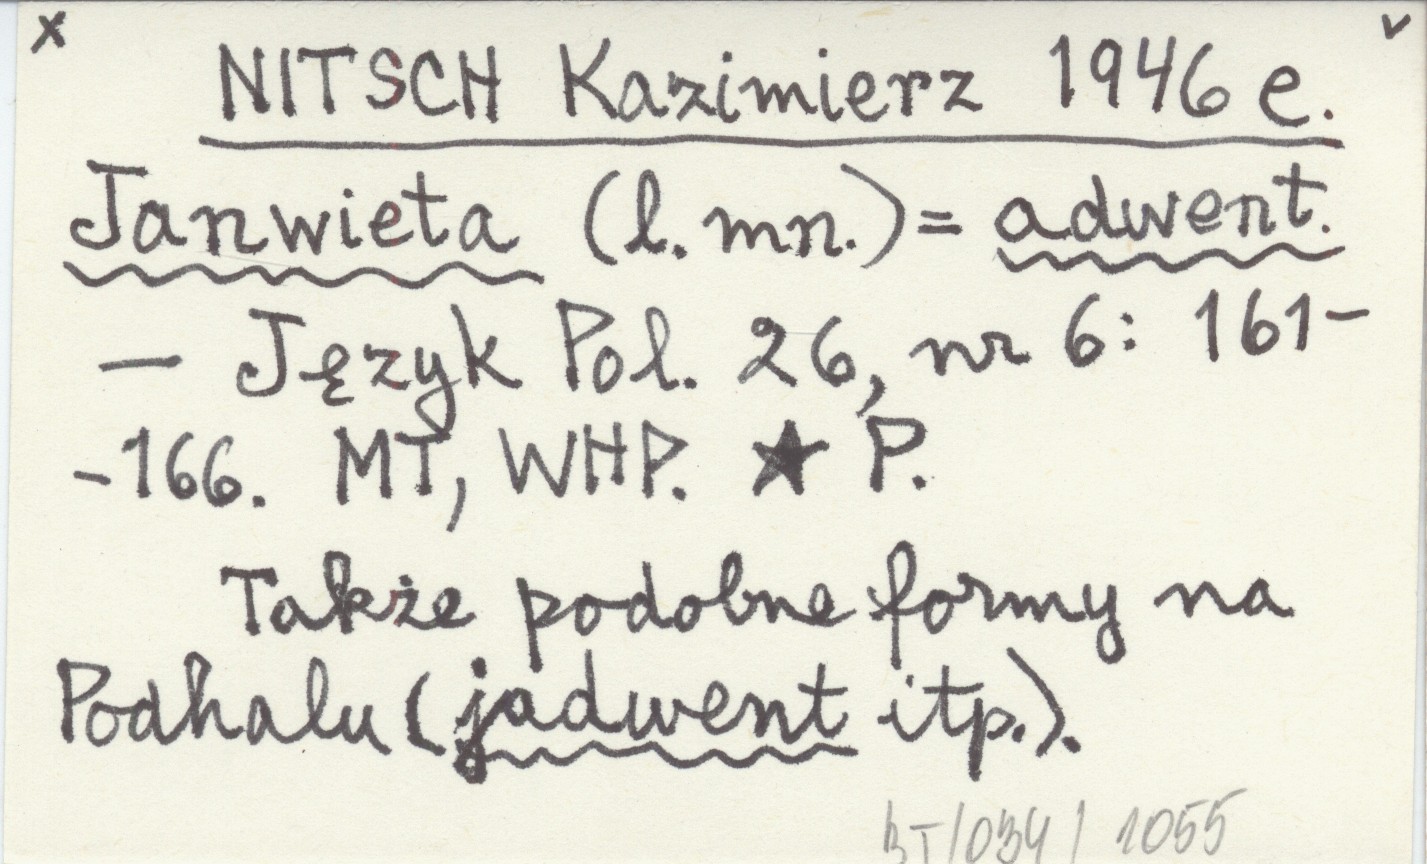 x v
NITSCH Kazimierz 1946 e.
Janwieta (l. mn.) = adwent.
— Język Pol. 26, nr 6: 161-
-166. MT, WHP. ★ P.
Także podobne formy na
Podhalu (jadwent itp.).
BT/034/1055